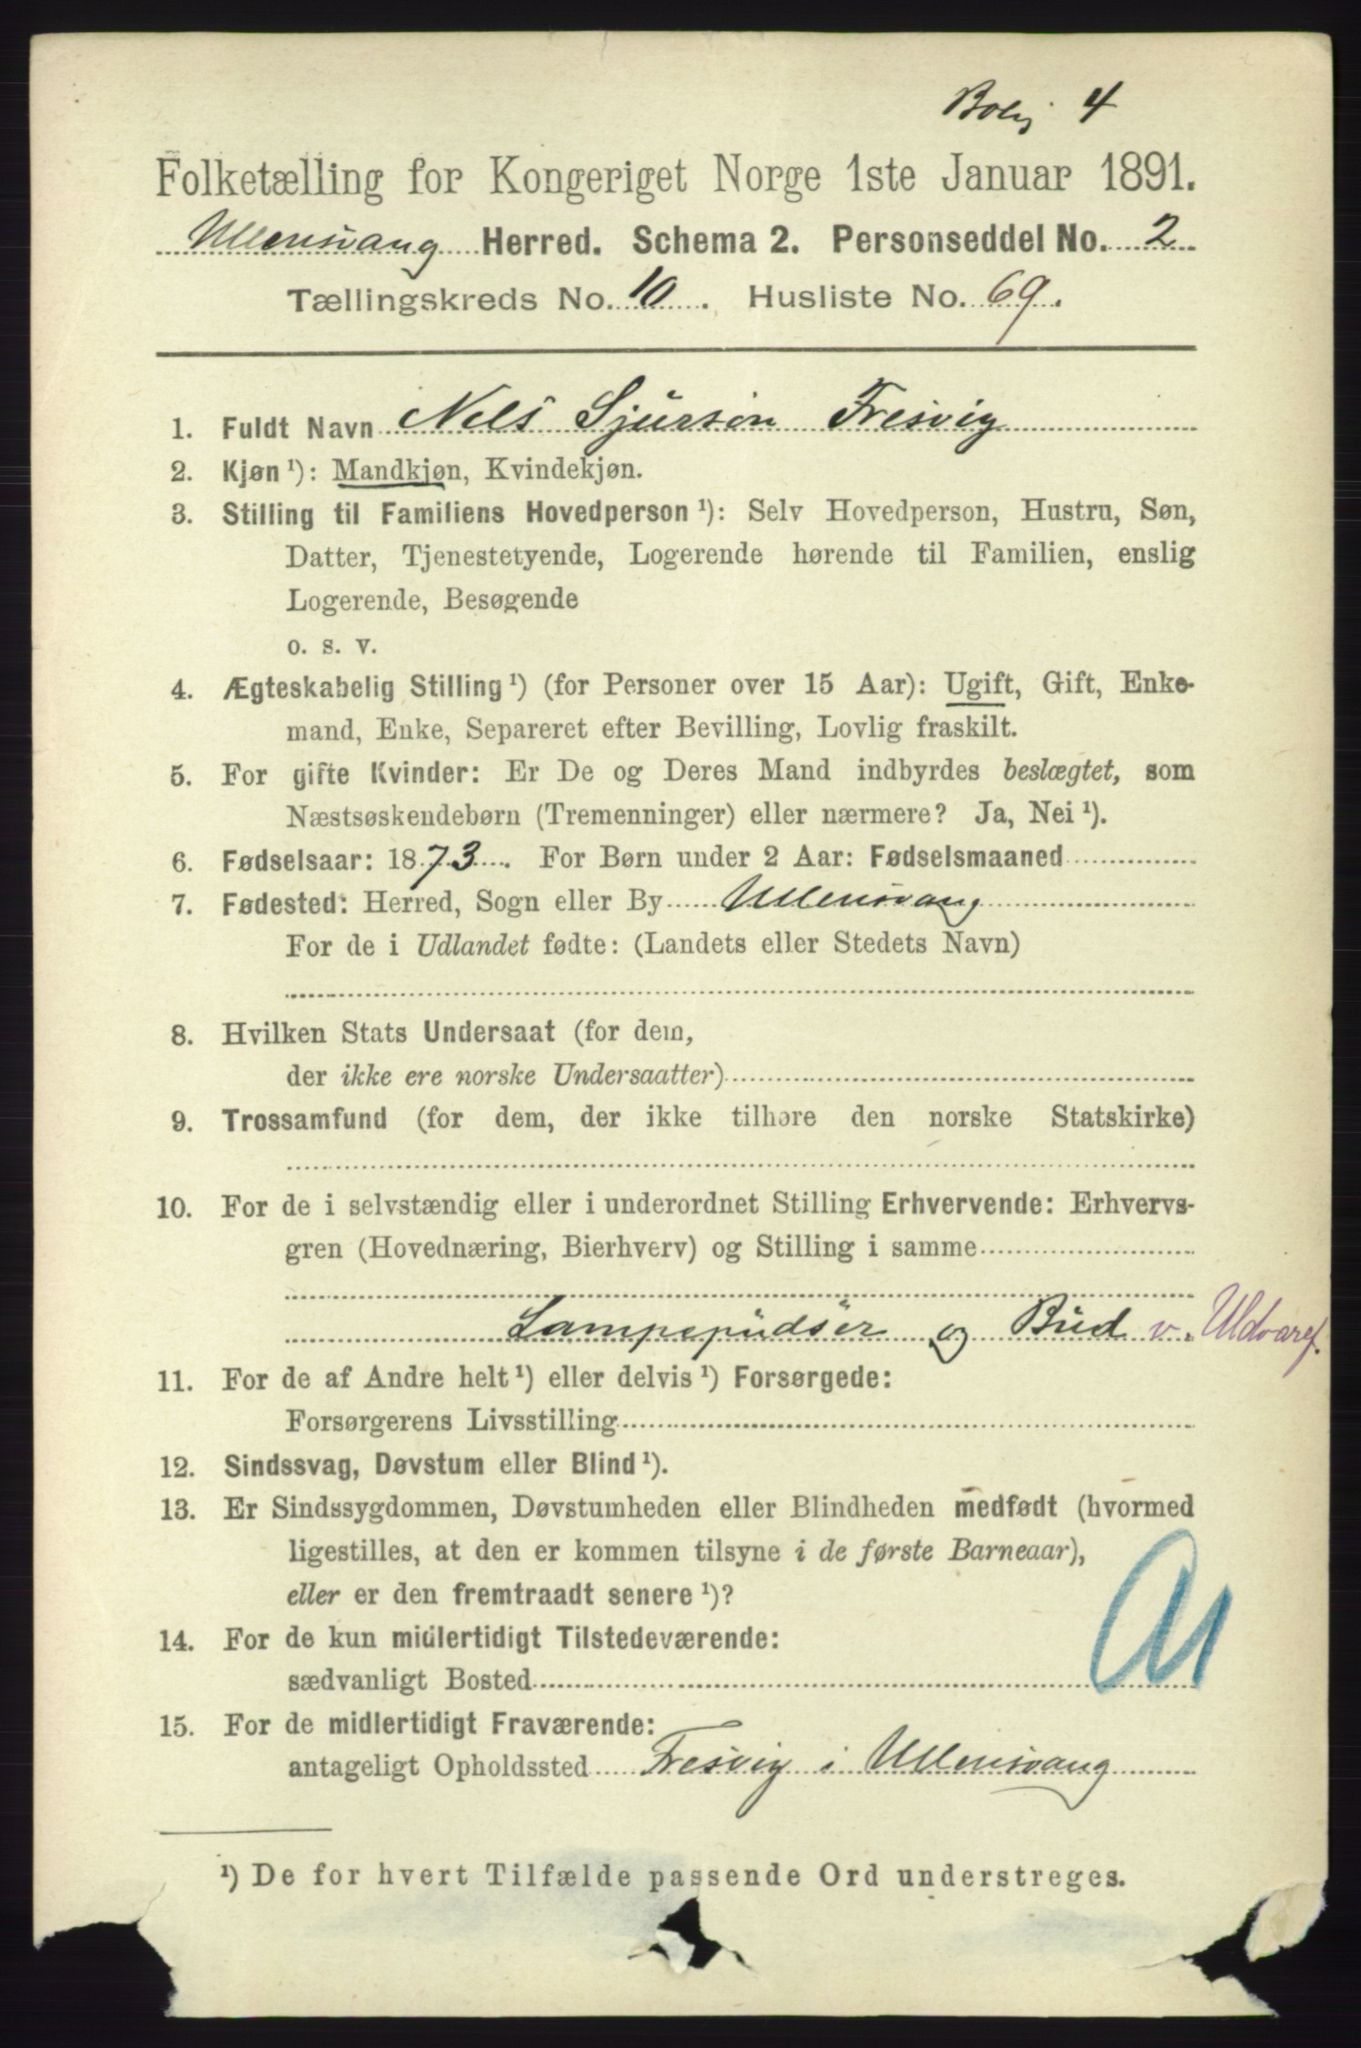 Bolig 4
Folketælling for Kongeriget Norge 1ste Januar 1891.
Ullensvang Herred. Schema 2. Personseddel No. 2
Tællingskreds No. 10. Husliste No. 69.
1. Fuldt Navn Nels Sjurson Fresvig
2. Kjøn ¹): Mandkjøn, Kvindekjøn.
3. Stilling til Familiens Hovedperson ¹): Selv Hovedperson, Hustru, Søn,
Datter, Tjenestetyende, Logerende hørende til Familien, enslig
Logerende, Besøgende
o. s. v.
4. Ægteskabelig Stilling ¹) (for Personer over 15 Aar): Ugift, Gift, Enke-
mand, Enke, Separeret efter Bevilling, Lovlig fraskilt.
5. For gifte Kvinder: Er De og Deres Mand indbyrdes beslægtet, som
Næstsøskendebørn (Tremenninger) eller nærmere? Ja, Nei ¹).
6. Fødselsaar: 1873. For Børn under 2 Aar: Fødselsmaaned
7. Fødested: Herred, Sogn eller By Ullensvang
For de i Udlandet fødte: (Landets eller Stedets Navn)
8. Hvilken Stats Undersaat (for dem,
der ikke ere norske Undersaatter)
9. Trossamfund (for dem, der ikke tilhøre den norske Statskirke)
10. For de i selvstændig eller i underordnet Stilling Erhvervende: Erhvervs-
gren (Hovednæring, Bierhverv) og Stilling i samme
Lampepudser og Bud v. Uldvaref.
11. For de af Andre helt ¹) eller delvis ¹) Forsørgede:
Forsørgerens Livsstilling
12. Sindssvag, Døvstum eller Blind ¹).
13. Er Sindssygdommen, Døvstumheden eller Blindheden medfødt (hvormed
ligestilles, at den er kommen tilsyne i de første Barneaar),
eller er den fremtraadt senere ¹)?
14. For de kun midlertidigt Tilstedeværende:
sædvanligt Bosted
15. For de midlertidigt Fraværende:
antageligt Opholdssted Fresvig i Ullensvang
¹) De for hvert Tilfælde passende Ord understreges.